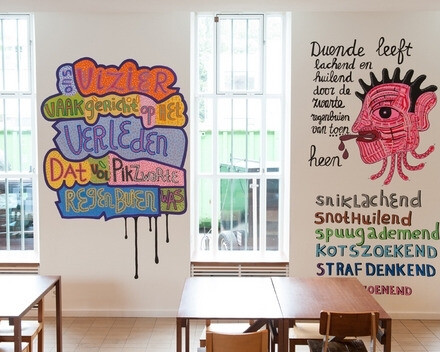 ons VIZIER
VAAK gericht op HET
VERLEDEN
DAT vol PikZwarte
REGENBUIEN WAS
Duende leeft
lachend en
huilend
door de
zwarte
regenbuien
van toen
heen
sniklachend
snotHuilend
spuugademend
KOTSZOEKEND
STRAFDENKEND